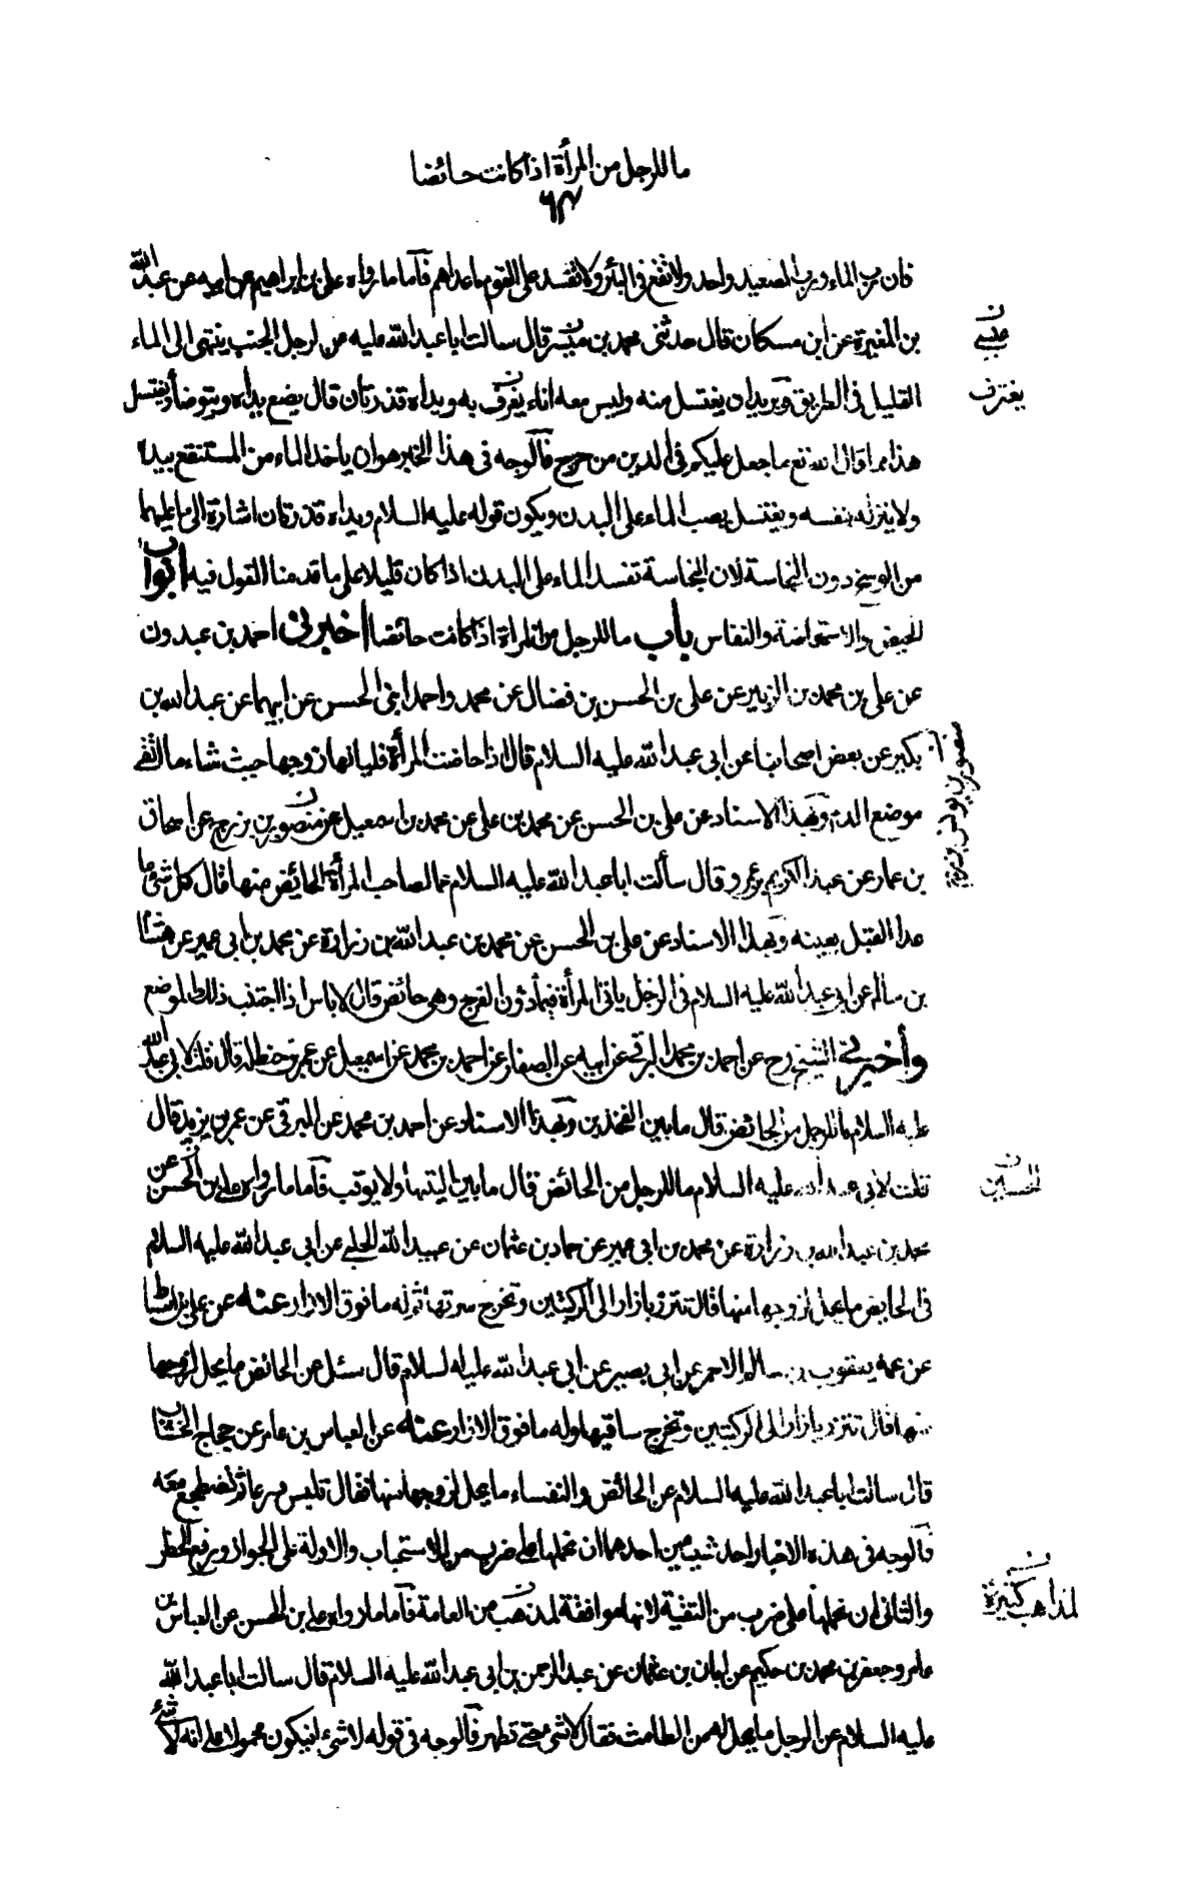 ما للرجل من المرأة اذا كانت حائضا
٦٤
فان رب الماء ورب الصعيد واحد ولا تقع فى البئر ولا تفسد على القوم ماءهم فأما ما رواه على بن ابراهيم عن ابيه عن عبد الله
بن المغيرة عن ابن مسكان قال حدثنى محمد بن ميسر قال سالت ابا عبد الله عليه عن الرجل الجنب ينتهى الى الماء
القليل فى الطريق ويريد ان يغتسل منه وليس معه اناء يغرف به ويداه قذرتان قال يضع يداه ويتوضأ ويغتسل
هذا مما قال الله تع ما جعل عليكم فى الدين من حرج فالوجه فى هذا الخبر هو ان ياخذ الماء من المستنقع بيده
ولا ينزله بنفسه ويغتسل بصب الماء على البدن ويكون قوله عليه السلام ويداه قذرتان اشارة الى ما عليهما
من الوسخ دون النجاسة لان النجاسة تفسد الماء على البدن اذا كان قليلا على ما قدمنا القول فيه ابواب
الحيض والاستحاضة والنفاس باب ما للرجل من المراة اذا كانت حائضا اخبرنى احمد بن عبدون
عن على بن محمد بن الزبير عن على بن الحسن بن فضال عن محمد واحمد ابنى الحسن عن ابيهما عن عبد الله بن
بكير عن بعض اصحابنا عن ابى عبد الله عليه السلام قال اذا حاضت المرأة فلياتها زوجها حيث شاء ما اتقى
موضع الدم وبهذا الاسناد عن على بن الحسن عن محمد بن على عن محمد بن اسمعيل عن منصور بن بزرج عن اسحاق
بن عمار عن عبد الكريم بن عمرو قال سألت ابا عبد الله عليه السلام عما لصاحب المرأة الحائض منها قال كل شئ ما
عدا القبل بعينه وبهذا الاسناد عن على بن الحسن عن محمد بن عبد الله بن زرارة عن محمد بن ابى عمير عن هشام
بن سالم عن ابى عبد الله عليه السلام فى الرجل ياتى المرأة فيما دون الفرج وهى حائض قال لا باس اذا اجتنب ذلك الموضع
وأخبرنى الشيخ رح عن احمد بن محمد البرقى عن ابيه عن الصفار عن احمد بن محمد عن اسمعيل عن عمر بن حنظلة قال قلت لابى عبد الله
عليه السلام ما للرجل من الحائض قال ما بين الفخذين وبهذا الاسناد عن احمد بن محمد عن البرقى عن عمر بن يزيد قال
قلت لابى عبد الله عليه السلام ما للرجل من الحائض قال ما بين اليتيها ولا يوقب فأما ما رواه على بن الحسن عن
محمد بن عبد الله بن زرارة عن محمد بن ابى عمير عن حماد بن عثمان عن عبيد الله الحلبى عن ابى عبد الله عليه السلام
فى الحايض ما يحل لزوجها منها قال تتزر بازار الى الركبتين وتخرج سرتها ثم له ما فوق الازار عنه عن على بن اسباط
عن عمه يعقوب بن سالم الاحمر عن ابى بصير عن ابى عبد الله عليه السلام قال سئل عن الحائض ما يحل لزوجها
منها قال تتزر بازار الى الركبتين وتخرج ساقيها وله ما فوق الازار عنه عن العباس بن عامر عن حجاج الخشاب
قال سالت ابا عبد الله عليه السلام عن الحائض والنفساء ما يحل لزوجها منها فقال تلبس درعا ثم تضطجع معه
فالوجه فى هذه الاخبار احد شيئين احدهما ان نحملها على ضرب من الاستحباب والاولة على الجواز ورفع الحظر
والثانى ان نحملها على ضرب من التقية لانها موافقة لمذهب من العامة فأما ما رواه على بن الحسن عن العباس بن
عامر وجعفر بن محمد بن حكيم عن ابان بن عثمان عن عبد الرحمن بن ابى عبد الله عليه السلام قال سالت ابا عبد الله
عليه السلام عن الرجل ما يحل له من الطامث فقال لا شئ حتى تطهر فالوجه فى قوله لا شئ ان يكون محمولا على انه لا شئ
عيسى
يغترف
منصور بن يونس بن بزرج
الحسين
لمذاهب كثيرة